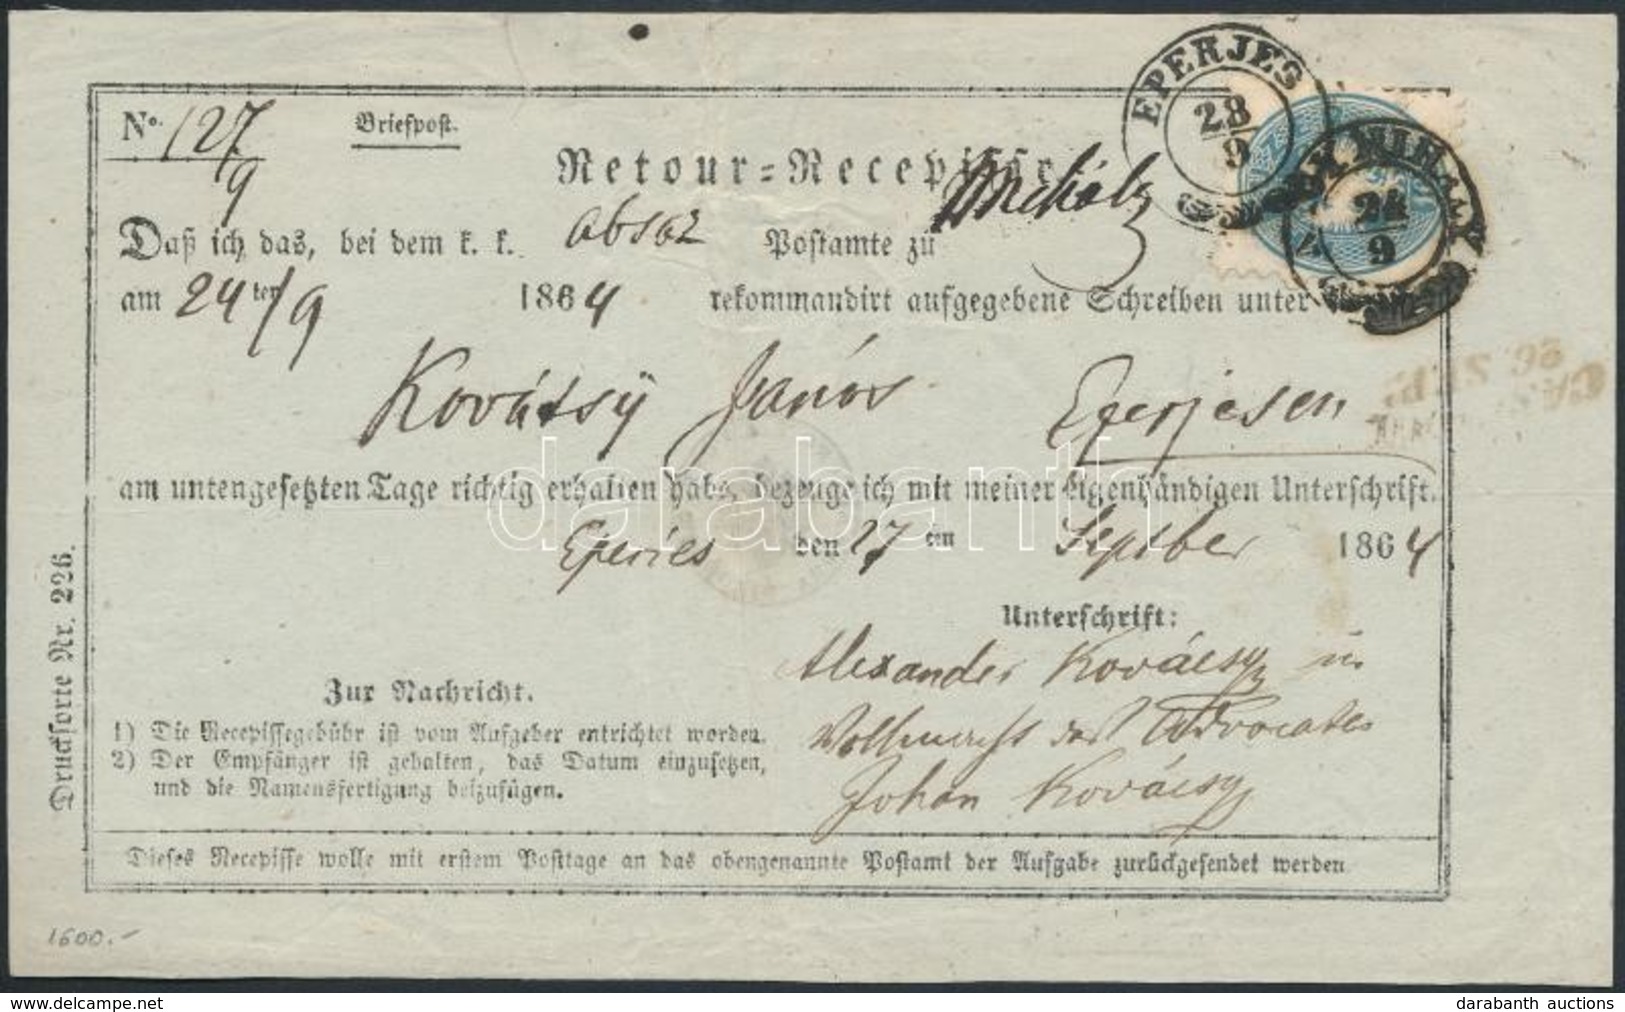 EPERJES
28
9
N. MIHALY
24
9
No. 127/9
Briefpost.
Retour=Recepisse
Daß ich das, bei dem k. k. absaz Postamte zu Nmihály
am 24 ten/9 1864 rekommandirt aufgegebene Schreiben unter
Kovátsÿ János Eperjesen
am untengesetzten Tage richtig erhalten habe, bezeuge ich mit meiner eigenhändigen Unterschrift.
Eperies den 27 ten September 1864
Unterschrift:
Alexander Kovácsy in
Vollmacht des Advocaten
Johan Kovácsy
Zur Nachricht.
1) Die Recepissegebühr ist vom Aufgeber entrichtet worden.
2) Der Empfänger ist gehalten, das Datum einzusetzen,
und die Namensfertigung beizufügen.
Dieses Recepisse wolle mit erstem Posttage an das obengenannte Postamt der Aufgabe zurückgesendet werden
Drucksorte Nr. 226.
1600.-
darabanth
darabanth auctions